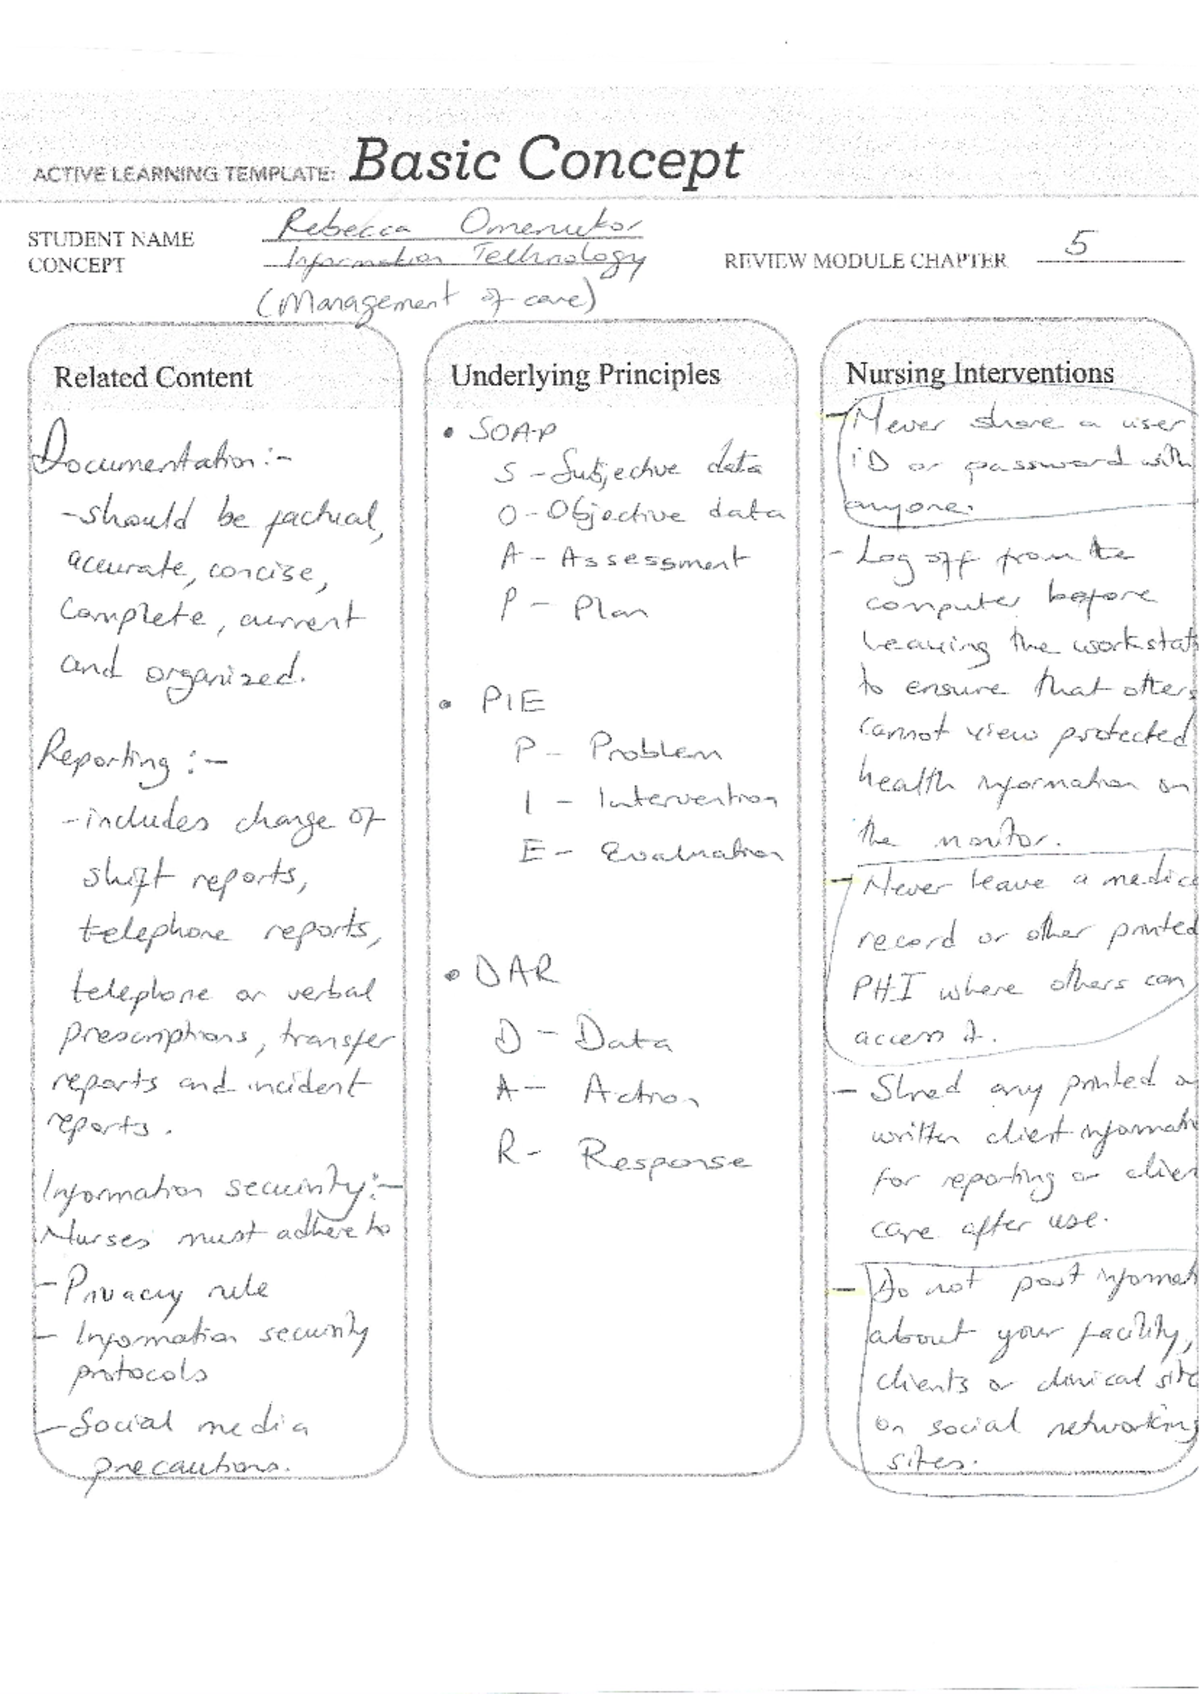 ACTIVE LEARNING TEMPLATE: Basic Concept
STUDENT NAME Rebecca
CONCEPT Information Technology
REVIEW MODULE CHAPTER 5
(Management of care)
Related Content
Documentation:-
-should be factual,
accurate, concise,
Complete, current
and organized.
Reporting :-
-includes change of
shift reports,
telephone reports,
telephone or verbal
prescriptions, transfer
reports and incident
reports.
Information security:-
Nurses must adhere to
- Privacy rule
- Information security
protocols
- Social media
precautions.
Underlying Principles
• SOAP
S - Subjective data
O - Objective data
A - Assessment
P - Plan
• PIE
P - Problem
I - Intervention
E - Evaluation
• DAR
D - Data
A - Action
R - Response
Nursing Interventions
- Never share a user
ID or password with
anyone.
- Log off from the
computer before
leaving the workstati
to ensure that others
cannot view protected
health information on
the monitor.
- Never leave a medica
record or other printed
PHI where others can
access it.
- Shred any printed or
written client informati
for reporting or clien
care after use.
- Do not post informat
about your facility,
clients or clinical site
on social networking
sites.